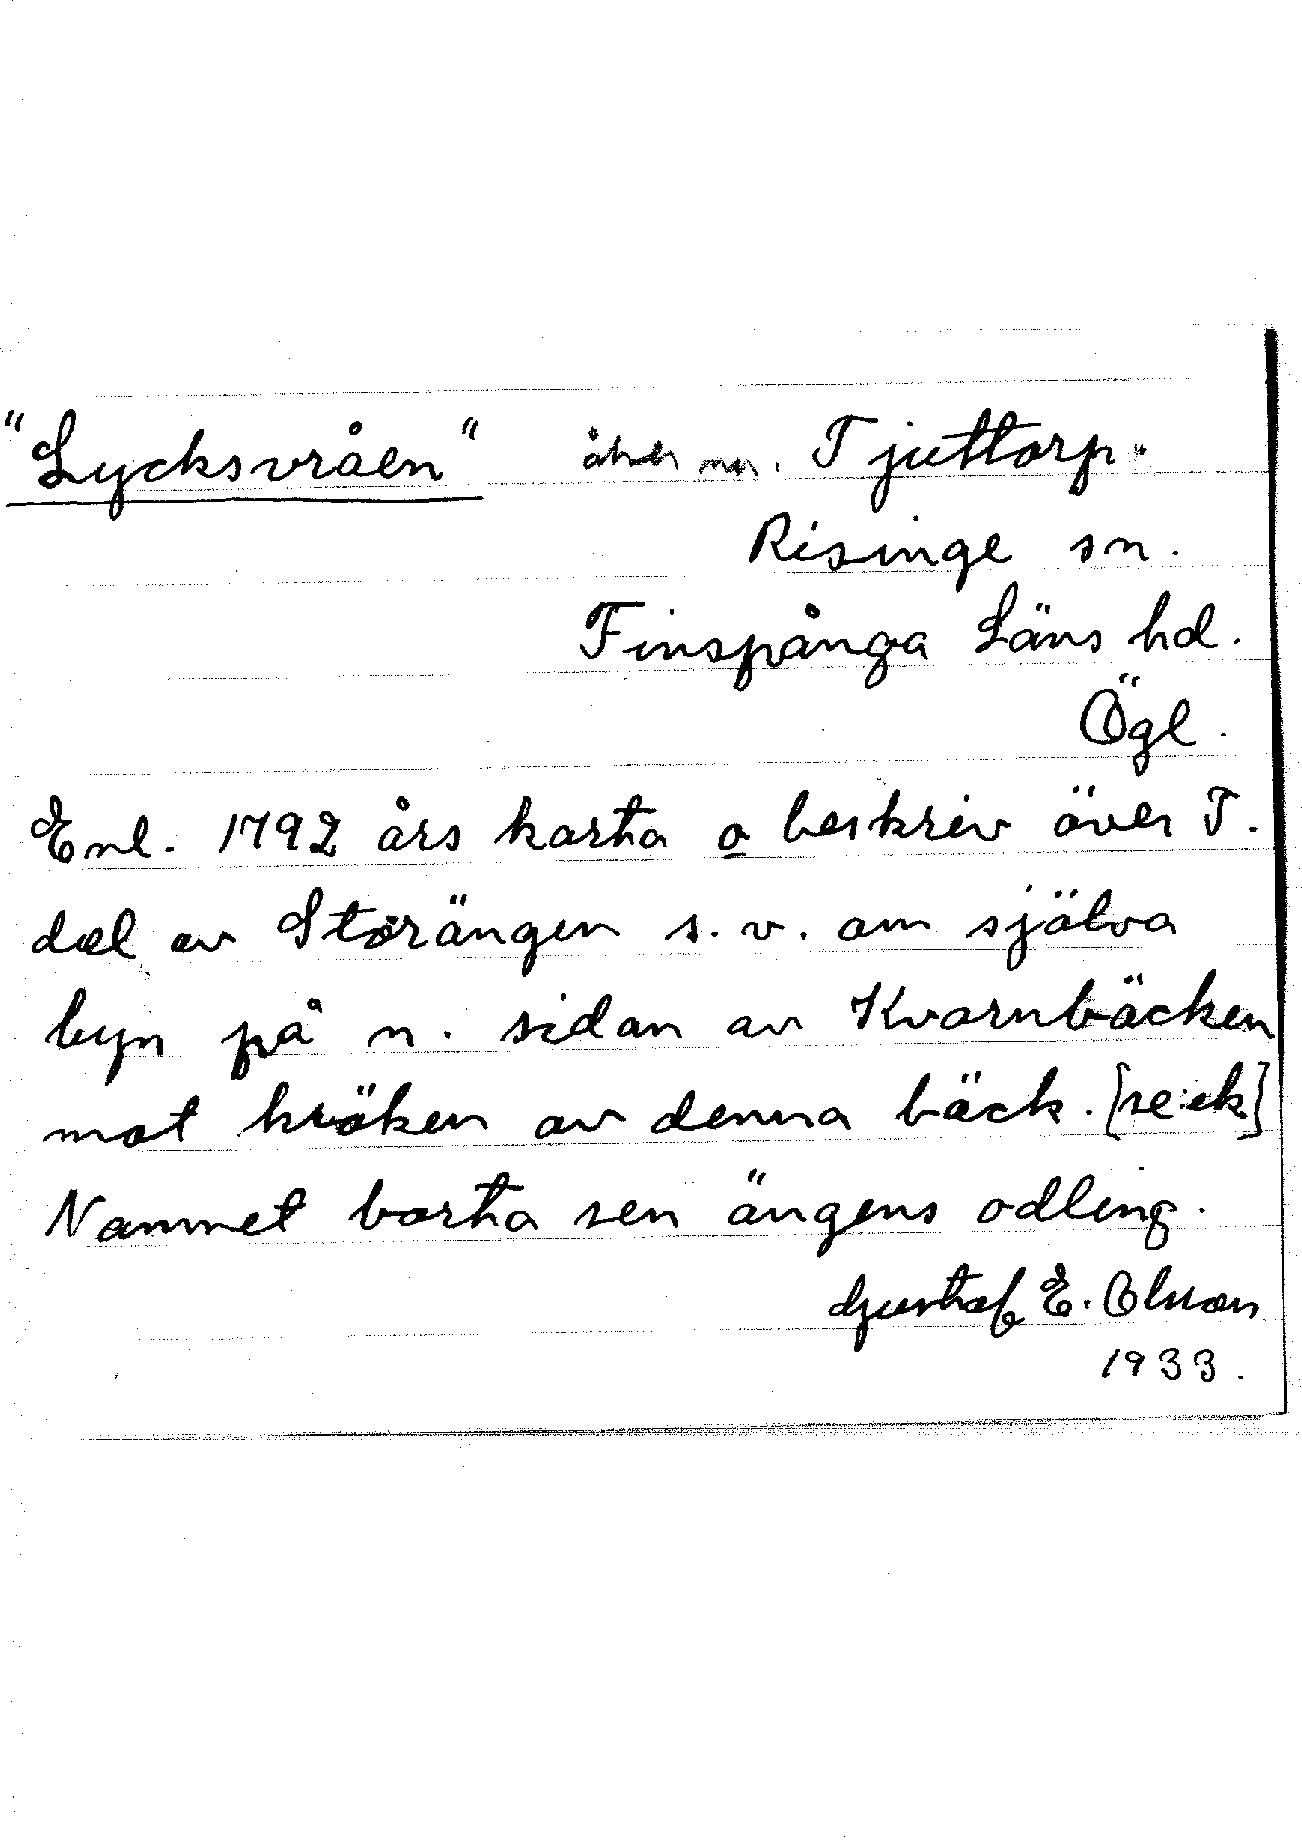 "Lycksvråen" åker Tjuttorp.
Risinge sn.
Finspånga Läns hd.
Ögl.
Enl. 1792 års karta o beskriv över T.
del av Storängen s.v. om själva
byn på n. sidan av Kvarnbäcken
mot kröken av denna bäck. [se ek]
Namnet borta sen ängens odling.
Gustaf E. Olsson
1933.